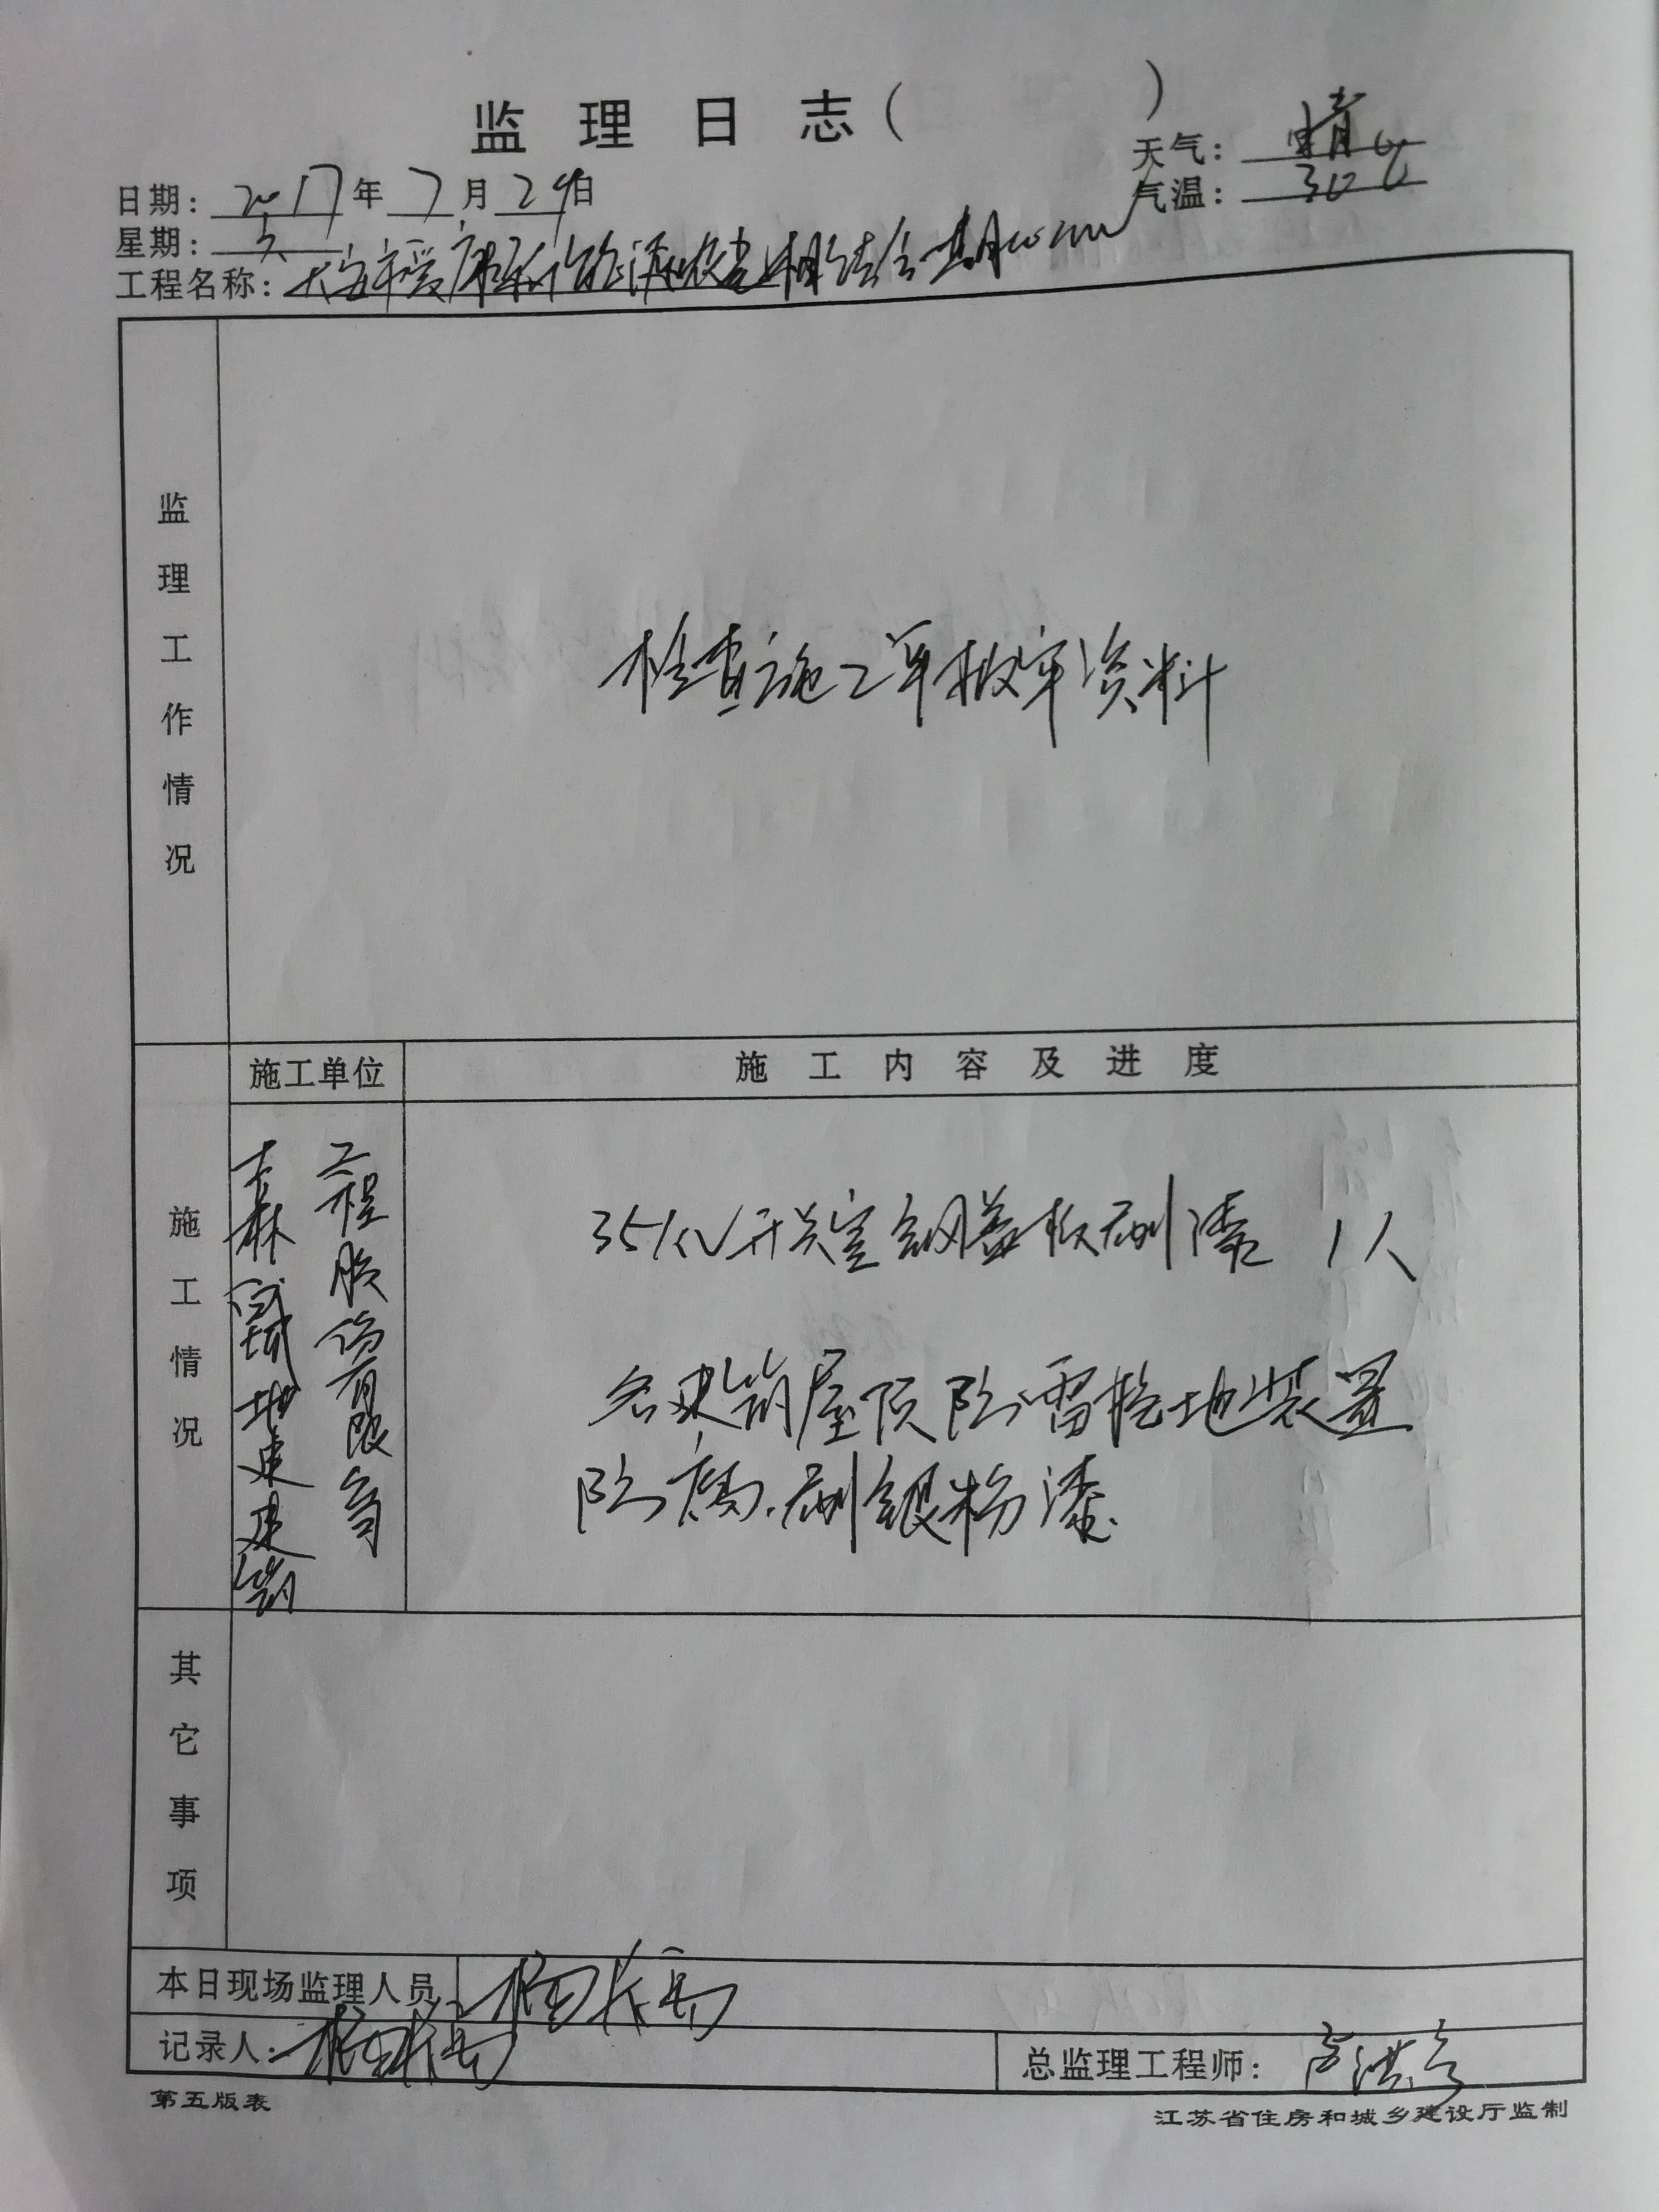 监理日志（ ）
天气：晴
日期：2017年7月29日
气温：30℃
星期：六
工程名称：大安市爱康农价能源设光相结合一期
监理工作情况
检查施工单报审资料
施工情况
施工单位
施工内容及进度
吉林 地建建筑
工程股份有限公司
35kV开关室钢盖板刷漆 1人
各建筑屋顶防雷接地装置
防腐.刷银粉漆.
其它事项
本日现场监理人员
记录人：
总监理工程师：
第五版表
江苏省住房和城乡建设厅监制